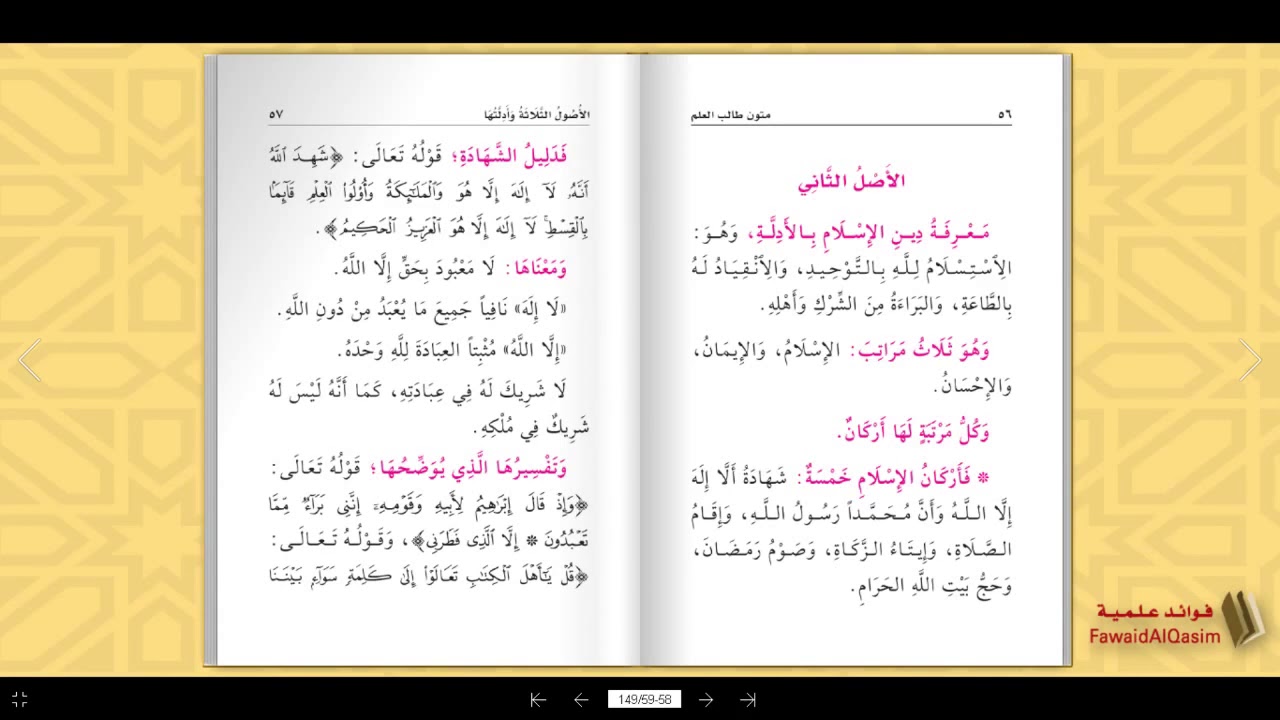 ٥٦
متون طالب العلم
الأَصْلُ الثَّانِي
مَعْرِفَةُ دِينِ الإِسْلَامِ بِالأَدِلَّةِ، وَهُوَ:
الِاسْتِسْلَامُ لِلَّهِ بِالتَّوْحِيدِ، وَالِانْقِيَادُ لَهُ
بِالطَّاعَةِ، وَالبَرَاءَةُ مِنَ الشِّرْكِ وَأَهْلِهِ.
وَهُوَ ثَلَاثُ مَرَاتِبَ: الإِسْلَامُ، وَالإِيمَانُ،
وَالإِحْسَانُ.
وَكُلُّ مَرْتَبَةٍ لَهَا أَرْكَانٌ.
* فَأَرْكَانُ الإِسْلَامِ خَمْسَةٌ: شَهَادَةُ أَلَّا إِلَهَ
إِلَّا اللَّهُ وَأَنَّ مُحَمَّداً رَسُولُ اللَّهِ، وَإِقَامُ
الصَّلَاةِ، وَإِيتَاءُ الزَّكَاةِ، وَصَوْمُ رَمَضَانَ،
وَحَجُّ بَيْتِ اللَّهِ الحَرَامِ.
الأُصُولُ الثَّلَاثَةُ وَأَدِلَّتُهَا
٥٧
فَدَلِيلُ الشَّهَادَةِ؛ قَوْلُهُ تَعَالَى: ﴿شَهِدَ ٱللَّهُ
أَنَّهُۥ لَآ إِلَٰهَ إِلَّا هُوَ وَٱلْمَلَٰٓئِكَةُ وَأُو۟لُوا۟ ٱلْعِلْمِ قَآئِمًۢا
بِٱلْقِسْطِۚ لَآ إِلَٰهَ إِلَّا هُوَ ٱلْعَزِيزُ ٱلْحَكِيمُ﴾.
وَمَعْنَاهَا: لَا مَعْبُودَ بِحَقٍّ إِلَّا اللَّهُ.
«لَا إِلَهَ» نَافِياً جَمِيعَ مَا يُعْبَدُ مِنْ دُونِ اللَّهِ.
«إِلَّا اللَّهُ» مُثْبِتاً العِبَادَةَ لِلَّهِ وَحْدَهُ.
لَا شَرِيكَ لَهُ فِي عِبَادَتِهِ، كَمَا أَنَّهُ لَيْسَ لَهُ
شَرِيكٌ فِي مُلْكِهِ.
وَتَفْسِيرُهَا الَّذِي يُوَضِّحُهَا؛ قَوْلُهُ تَعَالَى:
﴿وَإِذْ قَالَ إِبْرَٰهِيمُ لِأَبِيهِ وَقَوْمِهِۦٓ إِنَّنِى بَرَآءٌ مِّمَّا
تَعْبُدُونَ * إِلَّا ٱلَّذِى فَطَرَنِى﴾، وَقَوْلُهُ تَعَالَى:
﴿قُلْ يَٰٓأَهْلَ ٱلْكِتَٰبِ تَعَالَوْا۟ إِلَىٰ كَلِمَةٍ سَوَآءٍۭ بَيْنَنَا
فوائد علمية
FawaidAlQasim
149/59-58